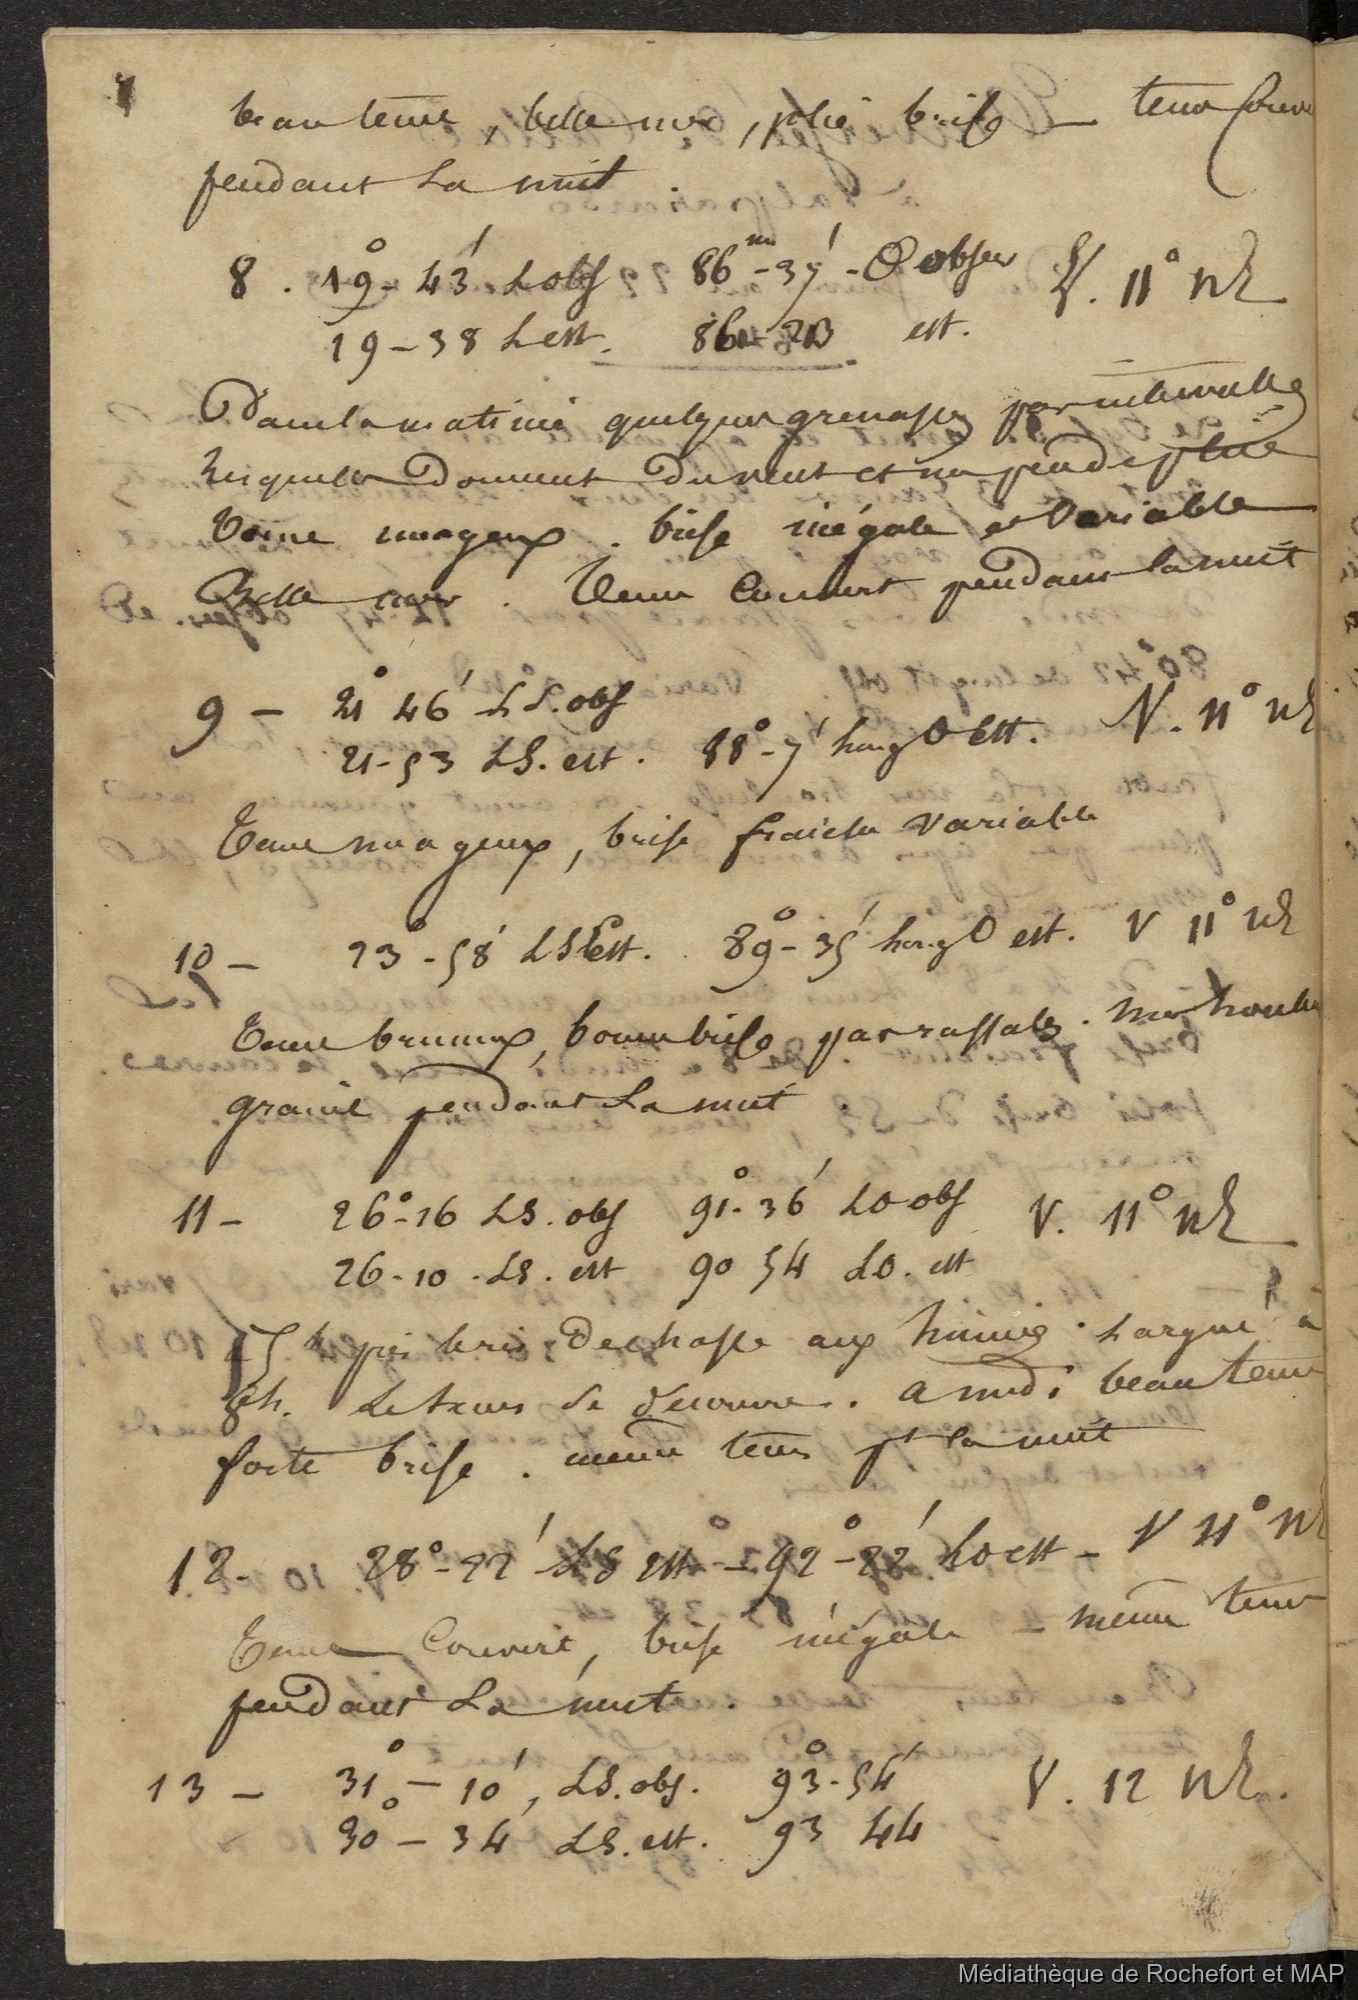 beau tems, belle mer, jolie brise — tems couve
pendant la nuit
8 . 19° - 43' L obs 86 - 37' - O obser V. 11° NE
19 - 38 L est. 86 - est.
Dans la matinée quelques grenasses par intervalles
lesquelles donnent du vent et un peu de pluie
tems nuageux . brise inégale et variable
Belle mer . tems couvert pendant la nuit
9 — 21° 46' LS. obs
21 - 53 LS. est . 88° - 7' Long O Est. V. 11° NE
Tems nuageux, brise fraiche variable
10 — 23° - 58' LS Est. 89° - 35' Long O est. V 11° NE
Tems brumeux, bonne brise par raffales . Mer houleu
graine pendant la nuit .
11 — 26° - 16 LS. obs 91° - 36' LO obs V. 11° NE
26 - 10 . LS. est 90 54 LO. est
à 5h pris le ris de chasse aux huniers . largué à
8h. Le tems se découvre . à midi beau tems
forte brise . même tems pt la nuit
12 - 28° - 22' LS est — 92° - 22' LO est — V 11° NE
Tems couvert, brise inégale même tems
pendant la nuit .
13 — 31° — 10', LS. obs. 93° - 54' V. 12 NE.
30° — 34 LS. est. 93 44
Médiathèque de Rochefort et MAP